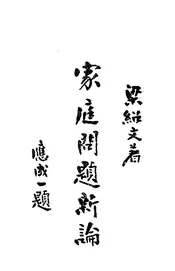 梁紹文著
家庭問題新論
應成一題